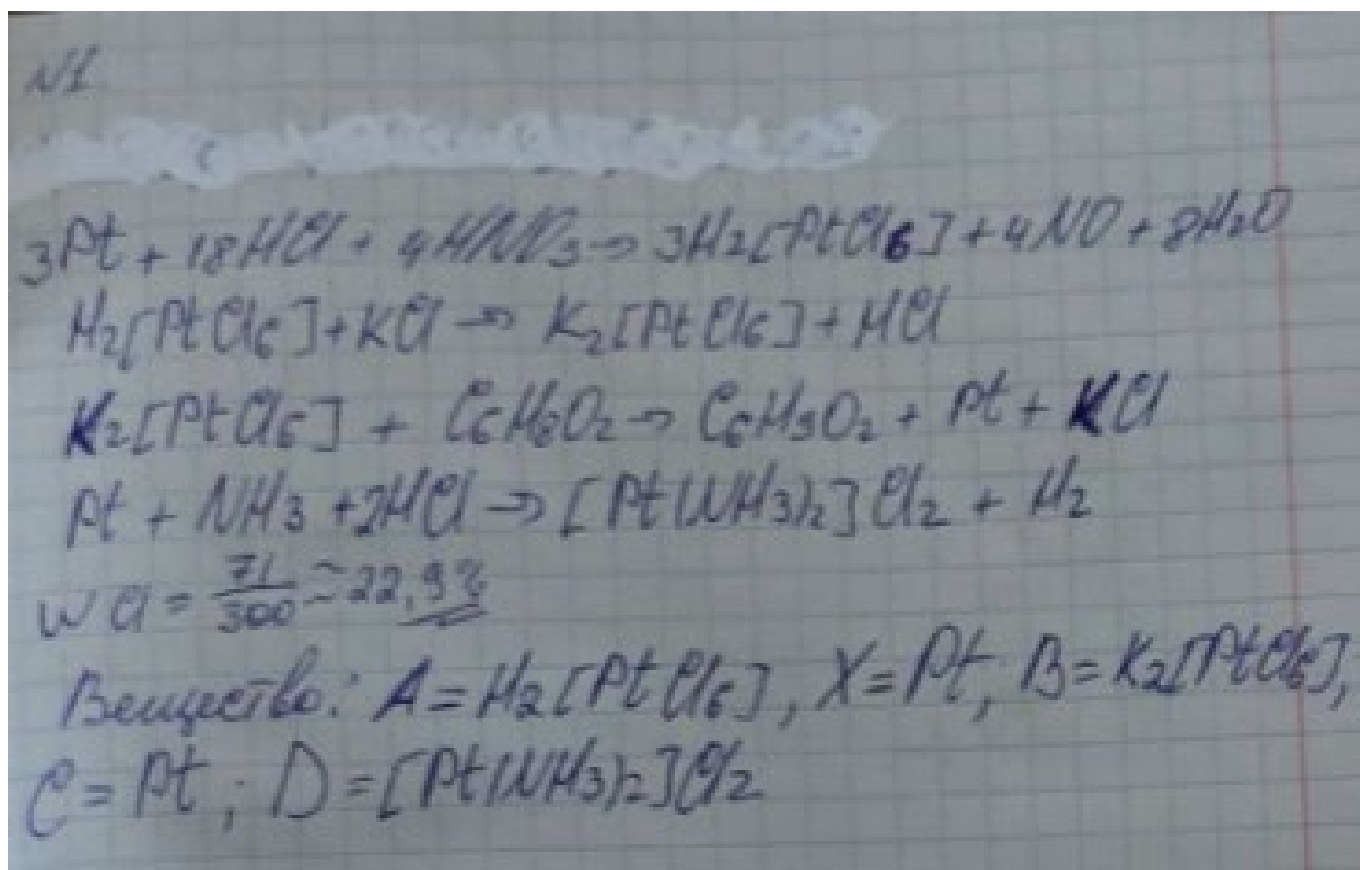 N1
3Pt + 18HCl + 4HNO3 → 3H2[PtCl6] + 4NO + 8H2O
H2[PtCl6] + KCl → K2[PtCl6] + HCl
K2[PtCl6] + C6H8O2 → C6H3O2 + Pt + KCl
Pt + NH3 + 2HCl → [Pt(NH3)2]Cl2 + H2
WCl = 71/300 = 22,9%
Вещество: A = H2[PtCl6], X = Pt, B = K2[PtCl6],
C = Pt; D = [Pt(NH3)2]Cl2